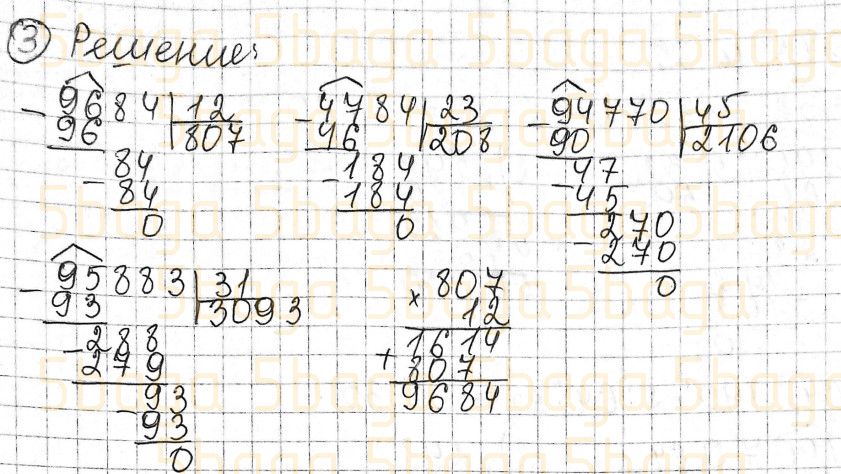 ③ Решение:
9684 | 12
- 96 | 807
84
- 84
0
4784 | 23
- 46 | 208
184
- 184
0
94770 | 45
- 90 | 2106
47
- 45
270
- 270
0
95883 | 31
- 93 | 3093
288
- 279
93
- 93
0
807
× 12
1614
+ 807
9684
5baga 5baga 5baga